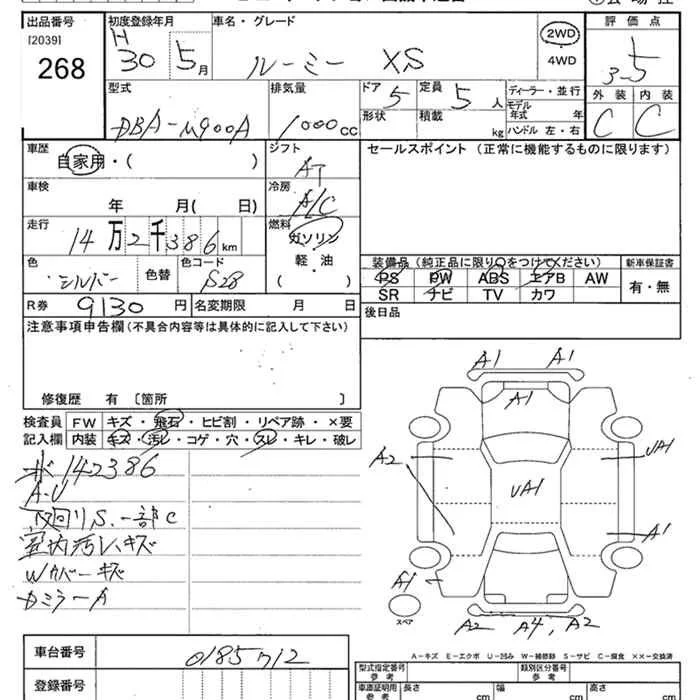 出品番号
[2039]
268
初度登録年月
H
30 5月
車名・グレード
ルーミー XS
2WD
・
4WD
評価点
3-5
外装 内装
C C
型式
DBA-M900A
排気量
1000cc
ドア
5
形状
定員
5人
積載
kg
ディーラー・並行
モデル
年式 年
ハンドル 左・右
車歴
自家用・( )
シフト
AT
セールスポイント (正常に機能するものに限ります)
車検
年 月( 日)
冷房
A/C
走行
14万2千386km
燃料
ガソリン
・
軽・油
( )
色
シルバー
色替
色コード
S28
装備品 (純正品に限り○をつけてください)
PS PW ABS エアB AW
SR ナビ TV カワ
新車保証書
有・無
R券 9130円
名変期限 月 日
後日品
注意事項申告欄(不具合内容等は具体的に記入して下さい)
修復歴 有 〔箇所 〕
検査員
記入欄
FW キズ・飛石・ヒビ割・リペア跡・×要
内装 キズ・汚レ・コゲ・穴・スレ・キレ・破レ
142386
A・U
下回りS、一部C
室内汚レ、キズ
Wカバーキズ
DミラーA
A1 A1
A1
A2
UA1
UA1
A1
A1
スペア
A2 A4, A2
A-キズ E-エクボ U-凹み W-補修跡 S-サビ C-腐食 ××-交換済
車台番号
0185712
登録番号
型式指定番号
参考
類別区分番号
参考
車庫証明用
参考
長さ
cm
幅
cm
高さ
cm